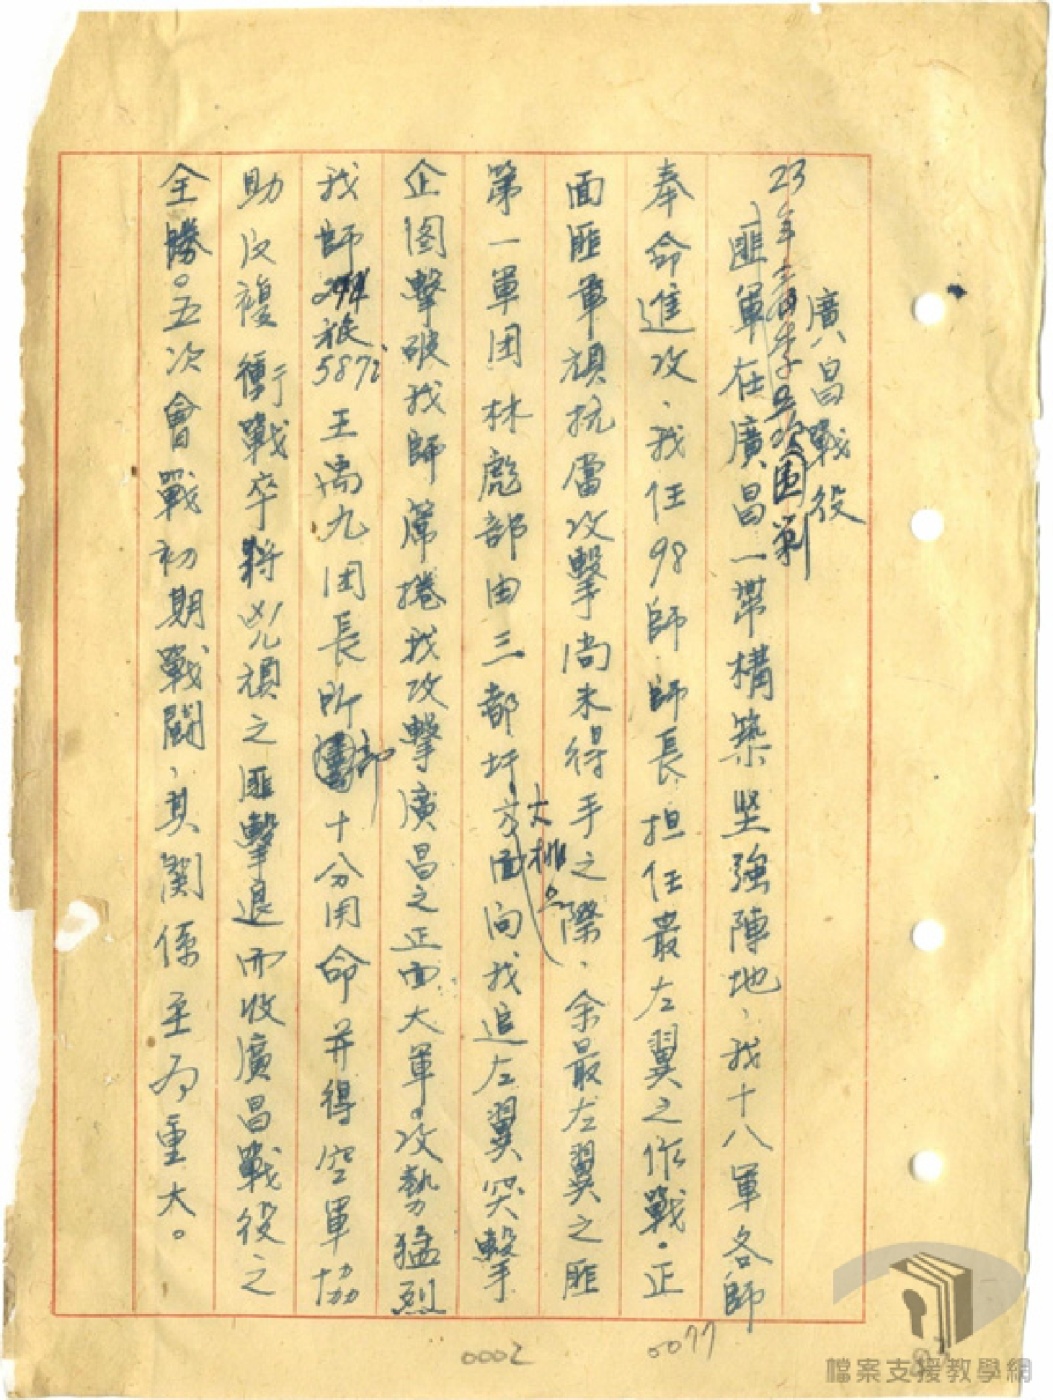 廣昌戰役
23年 五次圍剿
匪軍在廣昌一帶構築堅強陣地、我十八軍各師
奉命進攻、我任98師師長担任最左翼之作戰。正
面匪軍頑抗當攻擊尚未得手之際、余最左翼之匪
第一軍団林彪部由三都圩大排方面向我迫左翼突擊
企图擊破我師席捲我攻擊廣昌之正面大軍。攻勢猛烈
我師294旅587i王禹九团長所部十分用命并得空軍協
助反複衝戰卒將兇頑之匪擊退而收廣昌戰役之
全勝。五次會戰初期戰鬪、其関係至为重大。
0077
0002
檔案支援教學網